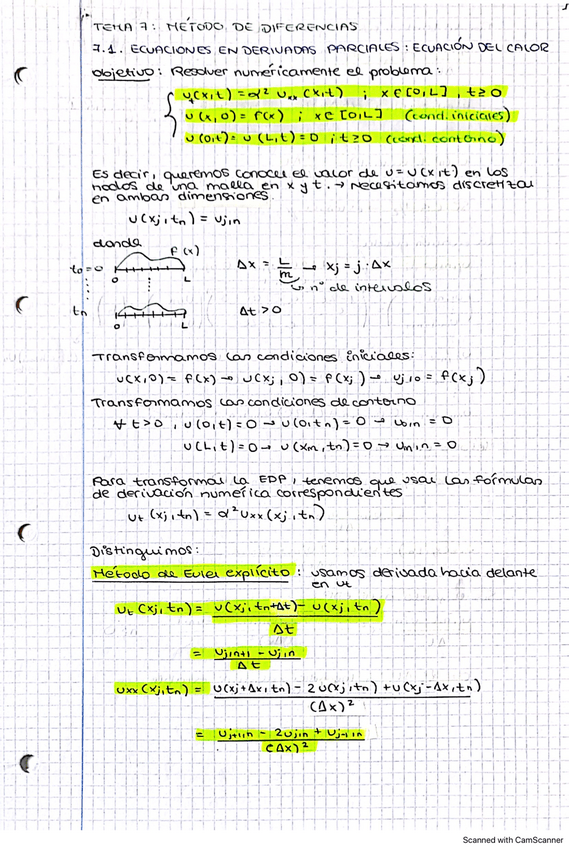 TEMA 7: MÉTODO DE DIFERENCIAS
7.1. ECUACIONES EN DERIVADAS PARCIALES: ECUACIÓN DEL CALOR
Objetivo: Resolver numéricamente el problema:
ut(x,t) = α² uxx(x,t) ; x ∈ [0,L], t ≥ 0
u(x,0) = f(x) ; x ∈ [0,L] (cond. iniciales)
u(0,t) = u(L,t) = 0 ; t ≥ 0 (cond. contorno)
Es decir, queremos conocer el valor de u = u(x,t) en los
nodos de una malla en x y t. → Necesitamos discretizar
en ambas dimensiones.
u(xj, tn) = uj,n
donde
f(x)
t0 = 0
0 L
Δx = L/m → xj = j·Δx
nº de intervalos
tn
0 L
Δt > 0
Transformamos las condiciones iniciales:
u(x,0) = f(x) → u(xj, 0) = f(xj) → uj,0 = f(xj)
Transformamos las condiciones de contorno
∀ t > 0, u(0,t) = 0 → u(0,tn) = 0 → u0,n = 0
u(L,t) = 0 → u(xm,tn) = 0 → um,n = 0
Para transformar la EDP, tenemos que usar las fórmulas
de derivación numérica correspondientes
ut(xj,tn) = α² uxx(xj,tn)
Distinguimos:
Método de Euler explícito: usamos derivada hacia delante
en ut
ut(xj,tn) = u(xj, tn+Δt) - u(xj,tn) / Δt
= uj,n+1 - uj,n / Δt
uxx(xj,tn) = u(xj+Δx,tn) - 2u(xj,tn) + u(xj-Δx,tn) / (Δx)²
= uj+1,n - 2uj,n + uj-1,n / (Δx)²
Scanned with CamScanner